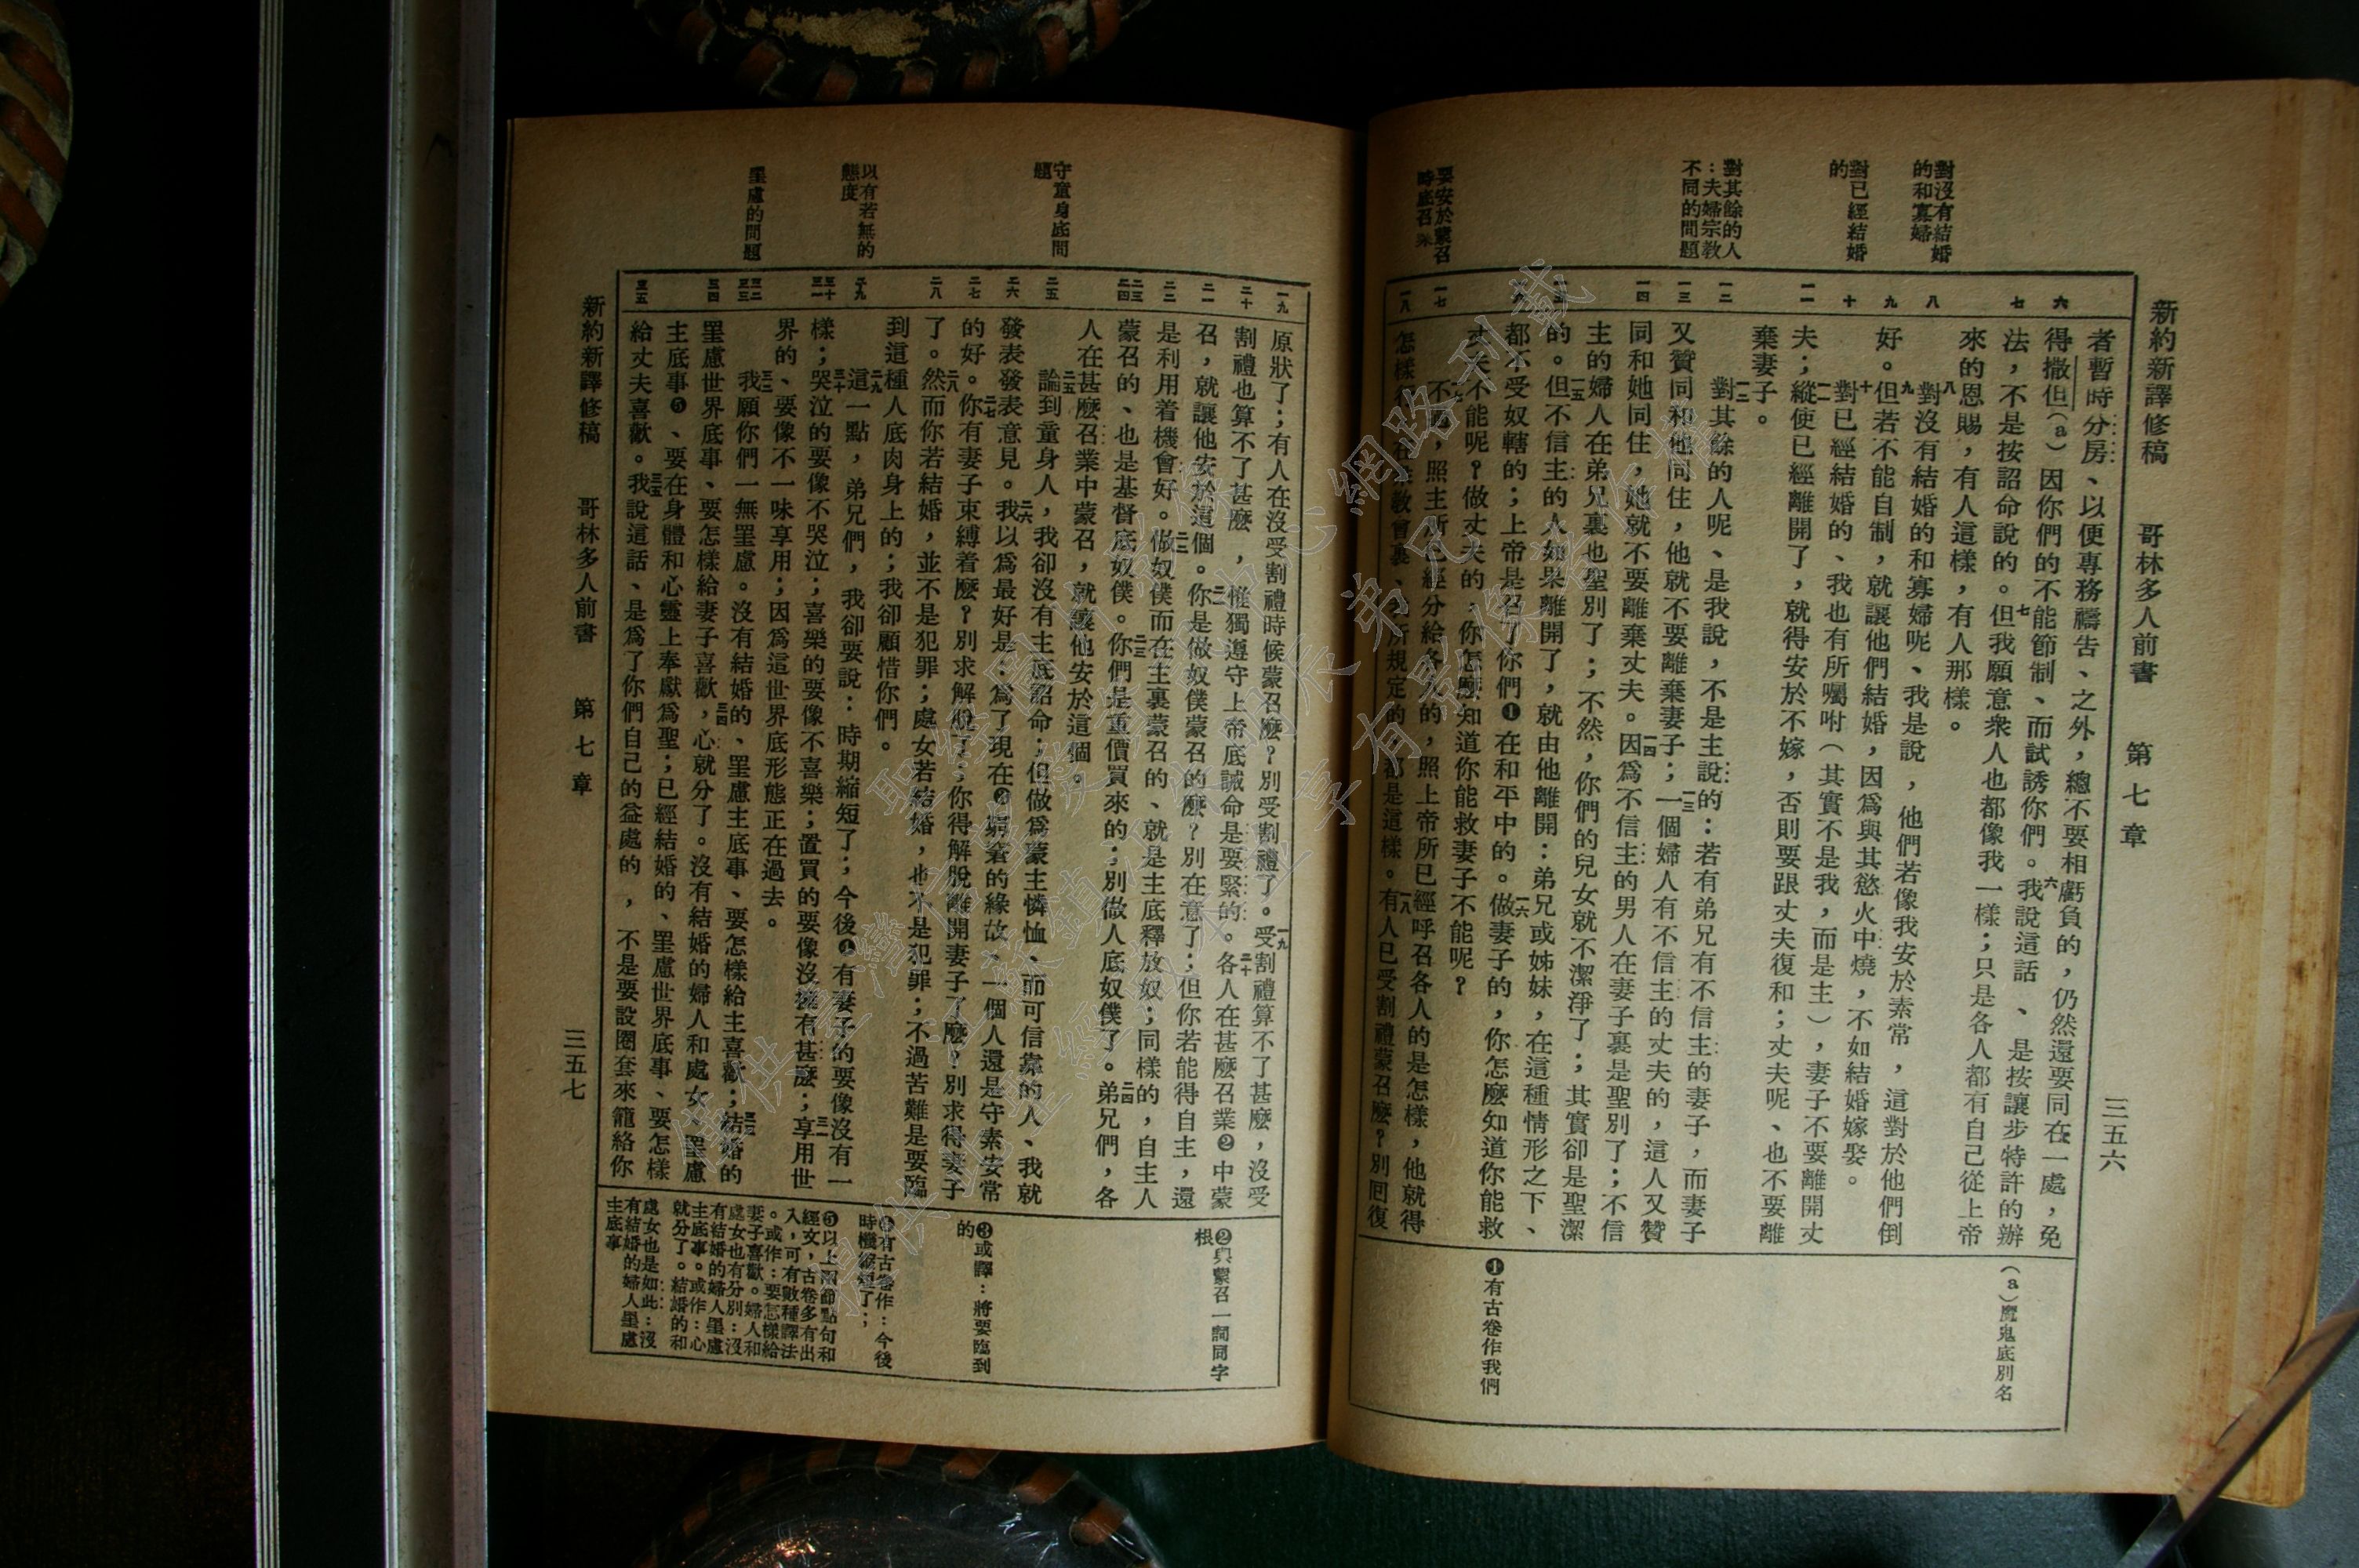 新約新譯修稿　哥林多人前書　第七章　三五六
對沒有結婚
的和寡婦
對已經結婚
的
對其餘的人
：夫婦宗教
不同的問題
要安於蒙召
時底召業
六
七
八
九
十
一一
一二
一三
一四
一七
一八
者暫時分房、以便專務禱告、之外，總不要相虧負的，仍然還要同在一處，免
得撒但（a）因你們的不能節制、而試誘你們。六我說這話、是按讓步特許的辦
法，不是按詔命說的。七但我願意衆人也都像我一樣；只是各人都有自己從上帝
來的恩賜，有人這樣，有人那樣。
八對沒有結婚的和寡婦呢、我是說，他們若像我安於素常，這對於他們倒
好。九但若不能自制，就讓他們結婚，因爲與其慾火中燒，不如結婚嫁娶。
十對已經結婚的、我也有所囑咐（其實不是我，而是主），妻子不要離開丈
夫；一一縱使已經離開了，就得安於不嫁，否則要跟丈夫復和；丈夫呢、也不要離
棄妻子。
一二對其餘的人呢、是我說，不是主說的：若有弟兄有不信主的妻子，而妻子
又贊同和他同住，他就不要離棄妻子；一三一個婦人有不信主的丈夫的，這人又贊
同和她同住，她就不要離棄丈夫。一四因爲不信主的男人在妻子裏是聖別了；不信
主的婦人在弟兄裏也聖別了；不然，你們的兒女就不潔淨了；其實卻是聖潔
的。一五但不信主的人如果離開了，就由他離開：弟兄或姊妹，在這種情形之下、
都不受奴轄的；上帝是召了你們❶在和平中的。一六做妻子的，你怎麼知道你能救
丈夫不能呢？做丈夫的，你怎麼知道你能救妻子不能呢？
一七不過，照主所已經分給各人的，照上帝所已經呼召各人的是怎樣，他就得
怎樣行。在衆教會裏、我所規定的都是這樣。一八有人已受割禮蒙召麼？別回復
（a）魔鬼底別名
❶有古卷作我們
守童身底問
題
以有若無的
態度
罣慮的問題
一九
二十
二一
二二
二三
二四
二五
二六
二七
二八
二九
三十
三一
三二
三三
三四
三五
原狀了；有人在沒受割禮時候蒙召麼？別受割禮了。一九受割禮算不了甚麼，沒受
割禮也算不了甚麼，惟獨遵守上帝底誡命是要緊的。二十各人在甚麼召業❷中蒙
召，就讓他安於這個。二一你是做奴僕蒙召的麼？別在意了；但你若能得自主，還
是利用着機會好。二二做奴僕而在主裏蒙召的、就是主底釋放奴；同樣的，自主人
蒙召的、也是基督底奴僕。二三你們是重價買來的；別做人底奴僕了。二四弟兄們，各
人在甚麼召業中蒙召，就讓他安於這個。
二五論到童身人，我卻沒有主底詔命；但做爲蒙主憐恤、而可信靠的人、我就
發表發表意見。二六我以爲最好是：爲了現在❸窘窘的緣故、一個人還是守素安常
的好。二七你有妻子束縛着麼？別求解脫了；你得解脫離開妻子了麼？別求得妻子
了。二八然而你若結婚，並不是犯罪；處女若結婚，也不是犯罪；不過苦難是要臨
到這種人底肉身上的；我卻顧惜你們。
二九這一點，弟兄們，我卻要說：時期縮短了；今後❹有妻子的要像沒有一
樣；三十哭泣的要像不哭泣；喜樂的要像不喜樂；置買的要像沒擁有甚麼；三一享用世
界的、要像不一味享用；因爲這世界底形態正在過去。
三二我願你們一無罣慮。沒有結婚的、罣慮主底事、要怎樣給主喜歡；三三結婚的
罣慮世界底事、要怎樣給妻子喜歡，三四心就分了。沒有結婚的婦人和處女、罣慮
主底事❺、要在身體和心靈上奉獻爲聖；已經結婚的、罣慮世界底事、要怎樣
給丈夫喜歡。三五我說這話、是爲了你們自己的益處的，不是要設圈套來籠絡你
❷與蒙召一詞同字
根
❸或譯：將要臨到
的
❹有古卷作：今後
時機縮短了；
❺以上兩節點句和
經文，古卷多有出
入，可有數種譯法
。或作：要怎樣給
妻子喜歡。婦人和
處女也有分別：沒
有結婚的婦人罣慮
主底事。或作：心
就分了。結婚的和
處女也是如此：沒
有結婚的婦人罣慮
主底事
新約新譯修稿　哥林多人前書　第七章　三五七